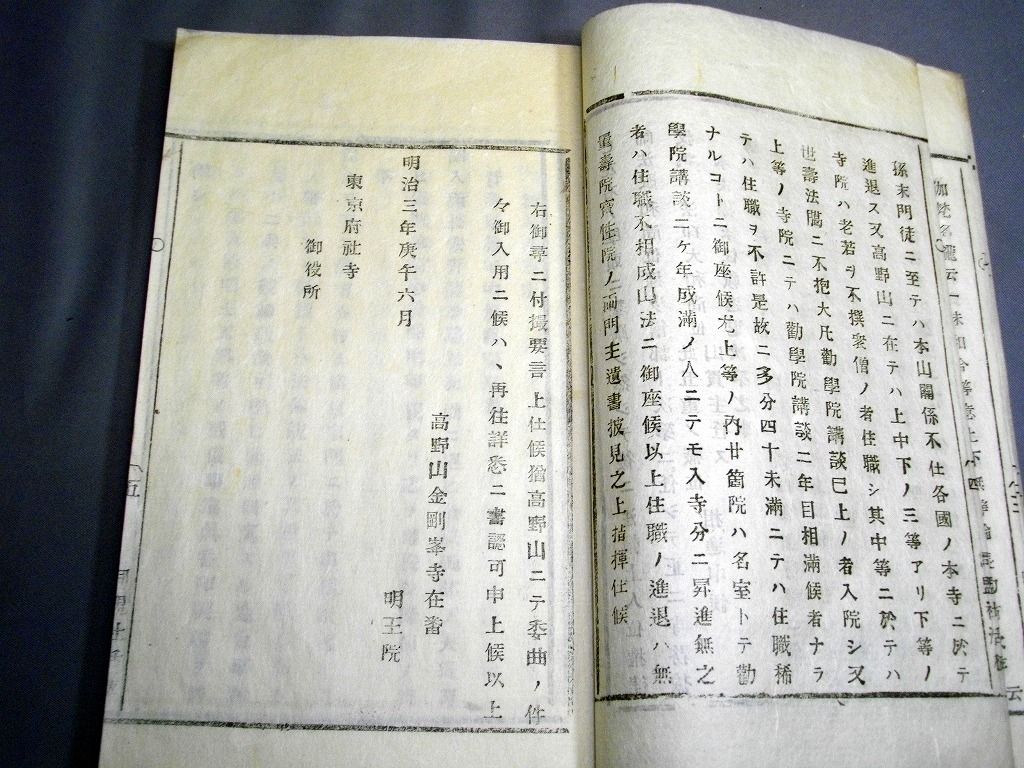 孫末門徒ニ至テハ本山關係不仕各國ノ本寺ニ於テ
進退ス又高野山ニ在テハ上中下ノ三等アリ下等ノ
寺院ハ老若ヲ不撰衆僧ノ者住職シ其中等ニ於テハ
世壽法﨟ニ不抱大凡勸學院講談巳上ノ者入院シ又
上等ノ寺院ニテハ勸學院講談二年目相滿候者ナラ
テハ住職ヲ不許是故ニ多分四十未滿ニテハ住職稀
ナルコトニ御座候尤上等ノ内廿箇院ハ名室トテ勸
學院講談二ケ年成滿ノ人ニテモ入寺分ニ昇進無之
者ハ住職不相成山法ニ御座候以上住職ノ進退ハ無
量壽院寳性院ノ両門主遺書披見之上指揮仕候
右御尋ニ付撮要言上仕候猶高野山ニテ委曲ノ件
々御入用ニ候ハ、再往詳悉ニ書認可申上候以上
高野山金剛峯寺在番
明王院
明治三年庚午六月
東京府社寺
御役所
五